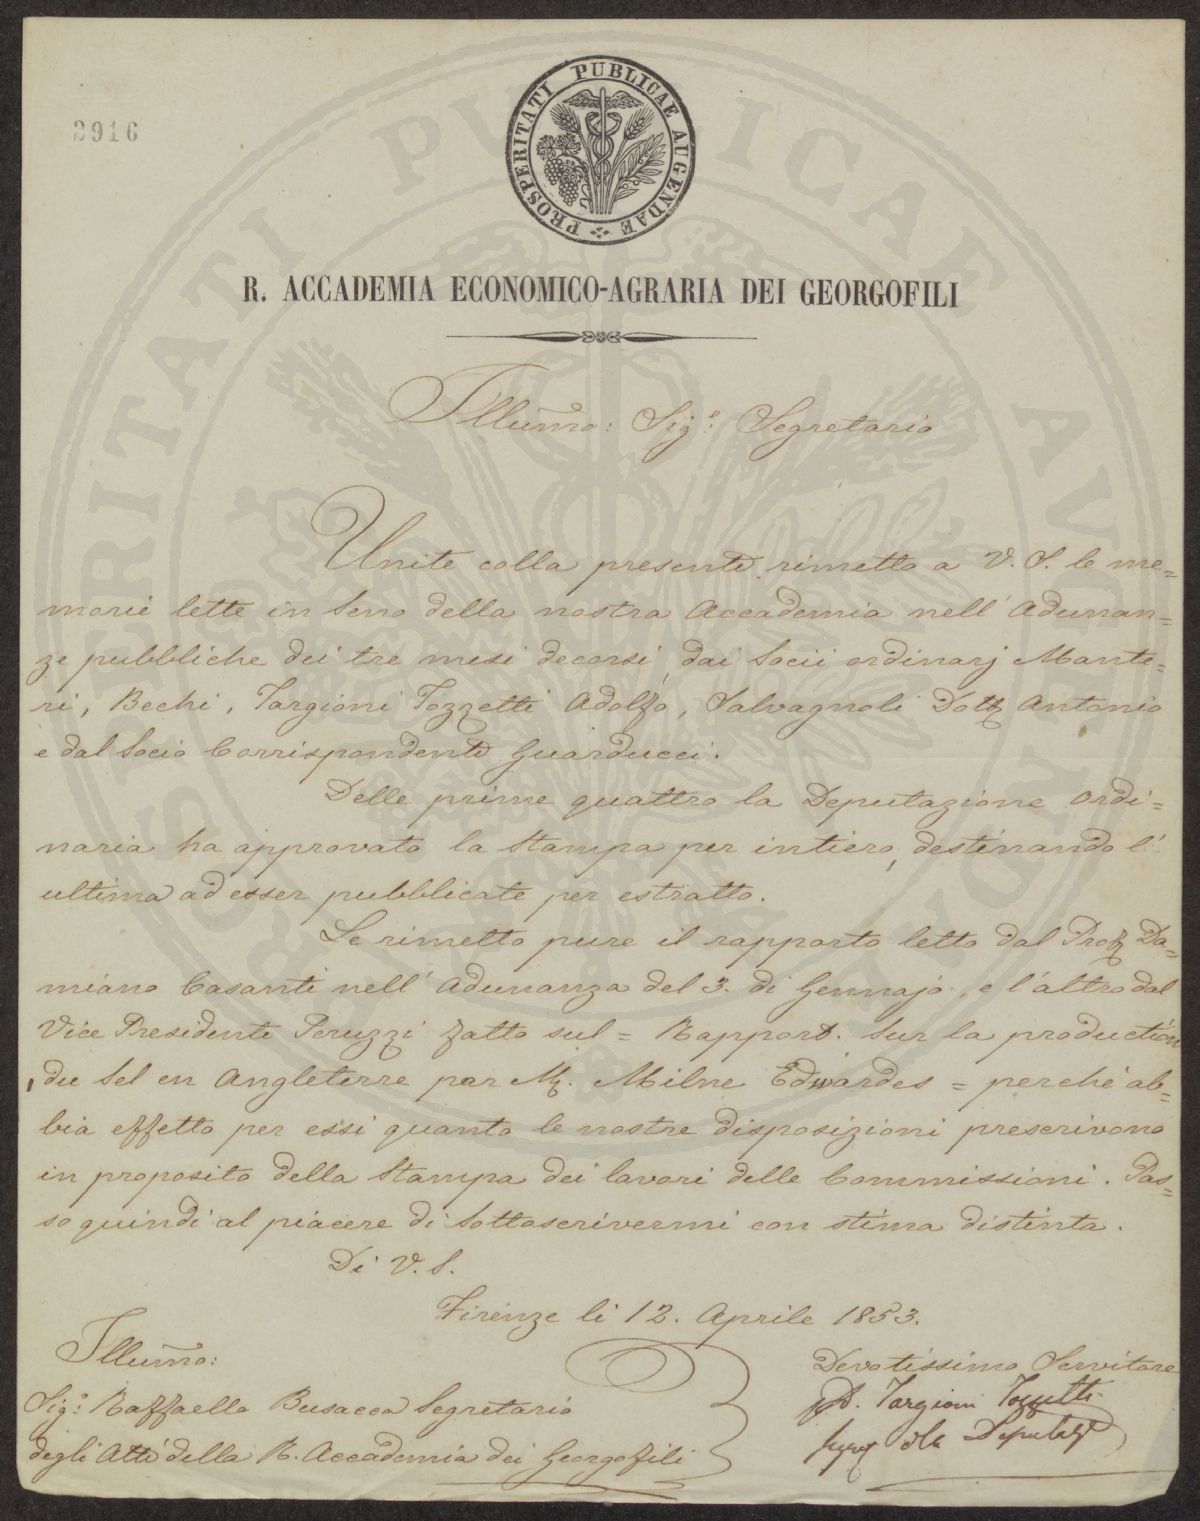 2916
PROSPERITATI PUBLICAE AUGENDAE
R. ACCADEMIA ECONOMICO-AGRARIA DEI GEORGOFILI
Illumo: Sigo: Segretario
Unite colla presente rimetto a V. S. le me=
morie lette in seno della nostra Accademia nell' Adunan=
ze pubbliche dei tre mesi decorsi, dai Socii ordinarj Mante=
ri, Bechi, Targioni Tozzetti Adolfo, Salvagnoli Dott Antonio
e dal Socio Corrispondente Guarducci.
Delle prime quattro la Deputazione ordi=
naria ha approvato la stampa per intiero, destinando l'
ultima ad esser pubblicate per estratto.
Le rimetto pure il rapporto letto dal Prof Da=
miano Casanti nell' Adunanza del 3. di Gennajo, e l'altro dal
Vice Presidente Peruzzi fatto sul = Rapport. sur la production
du Sel en Angleterre par Mr. Milne Edwardes = perchè ab=
bia effetto per essi quanto le nostre disposizioni prescrivono
in proposito della stampa dei lavori delle Commissioni. Pas=
so quindi al piacere di sottoscrivermi con stima distinta.
Di V. S.
Firenze li 12. Aprile 1853.
Illumo:
Sigo: Raffaello Busacca Segretario
degli Atti della R. Accademia dei Georgofili
Devotissimo Servitore
Targioni Tozzetti